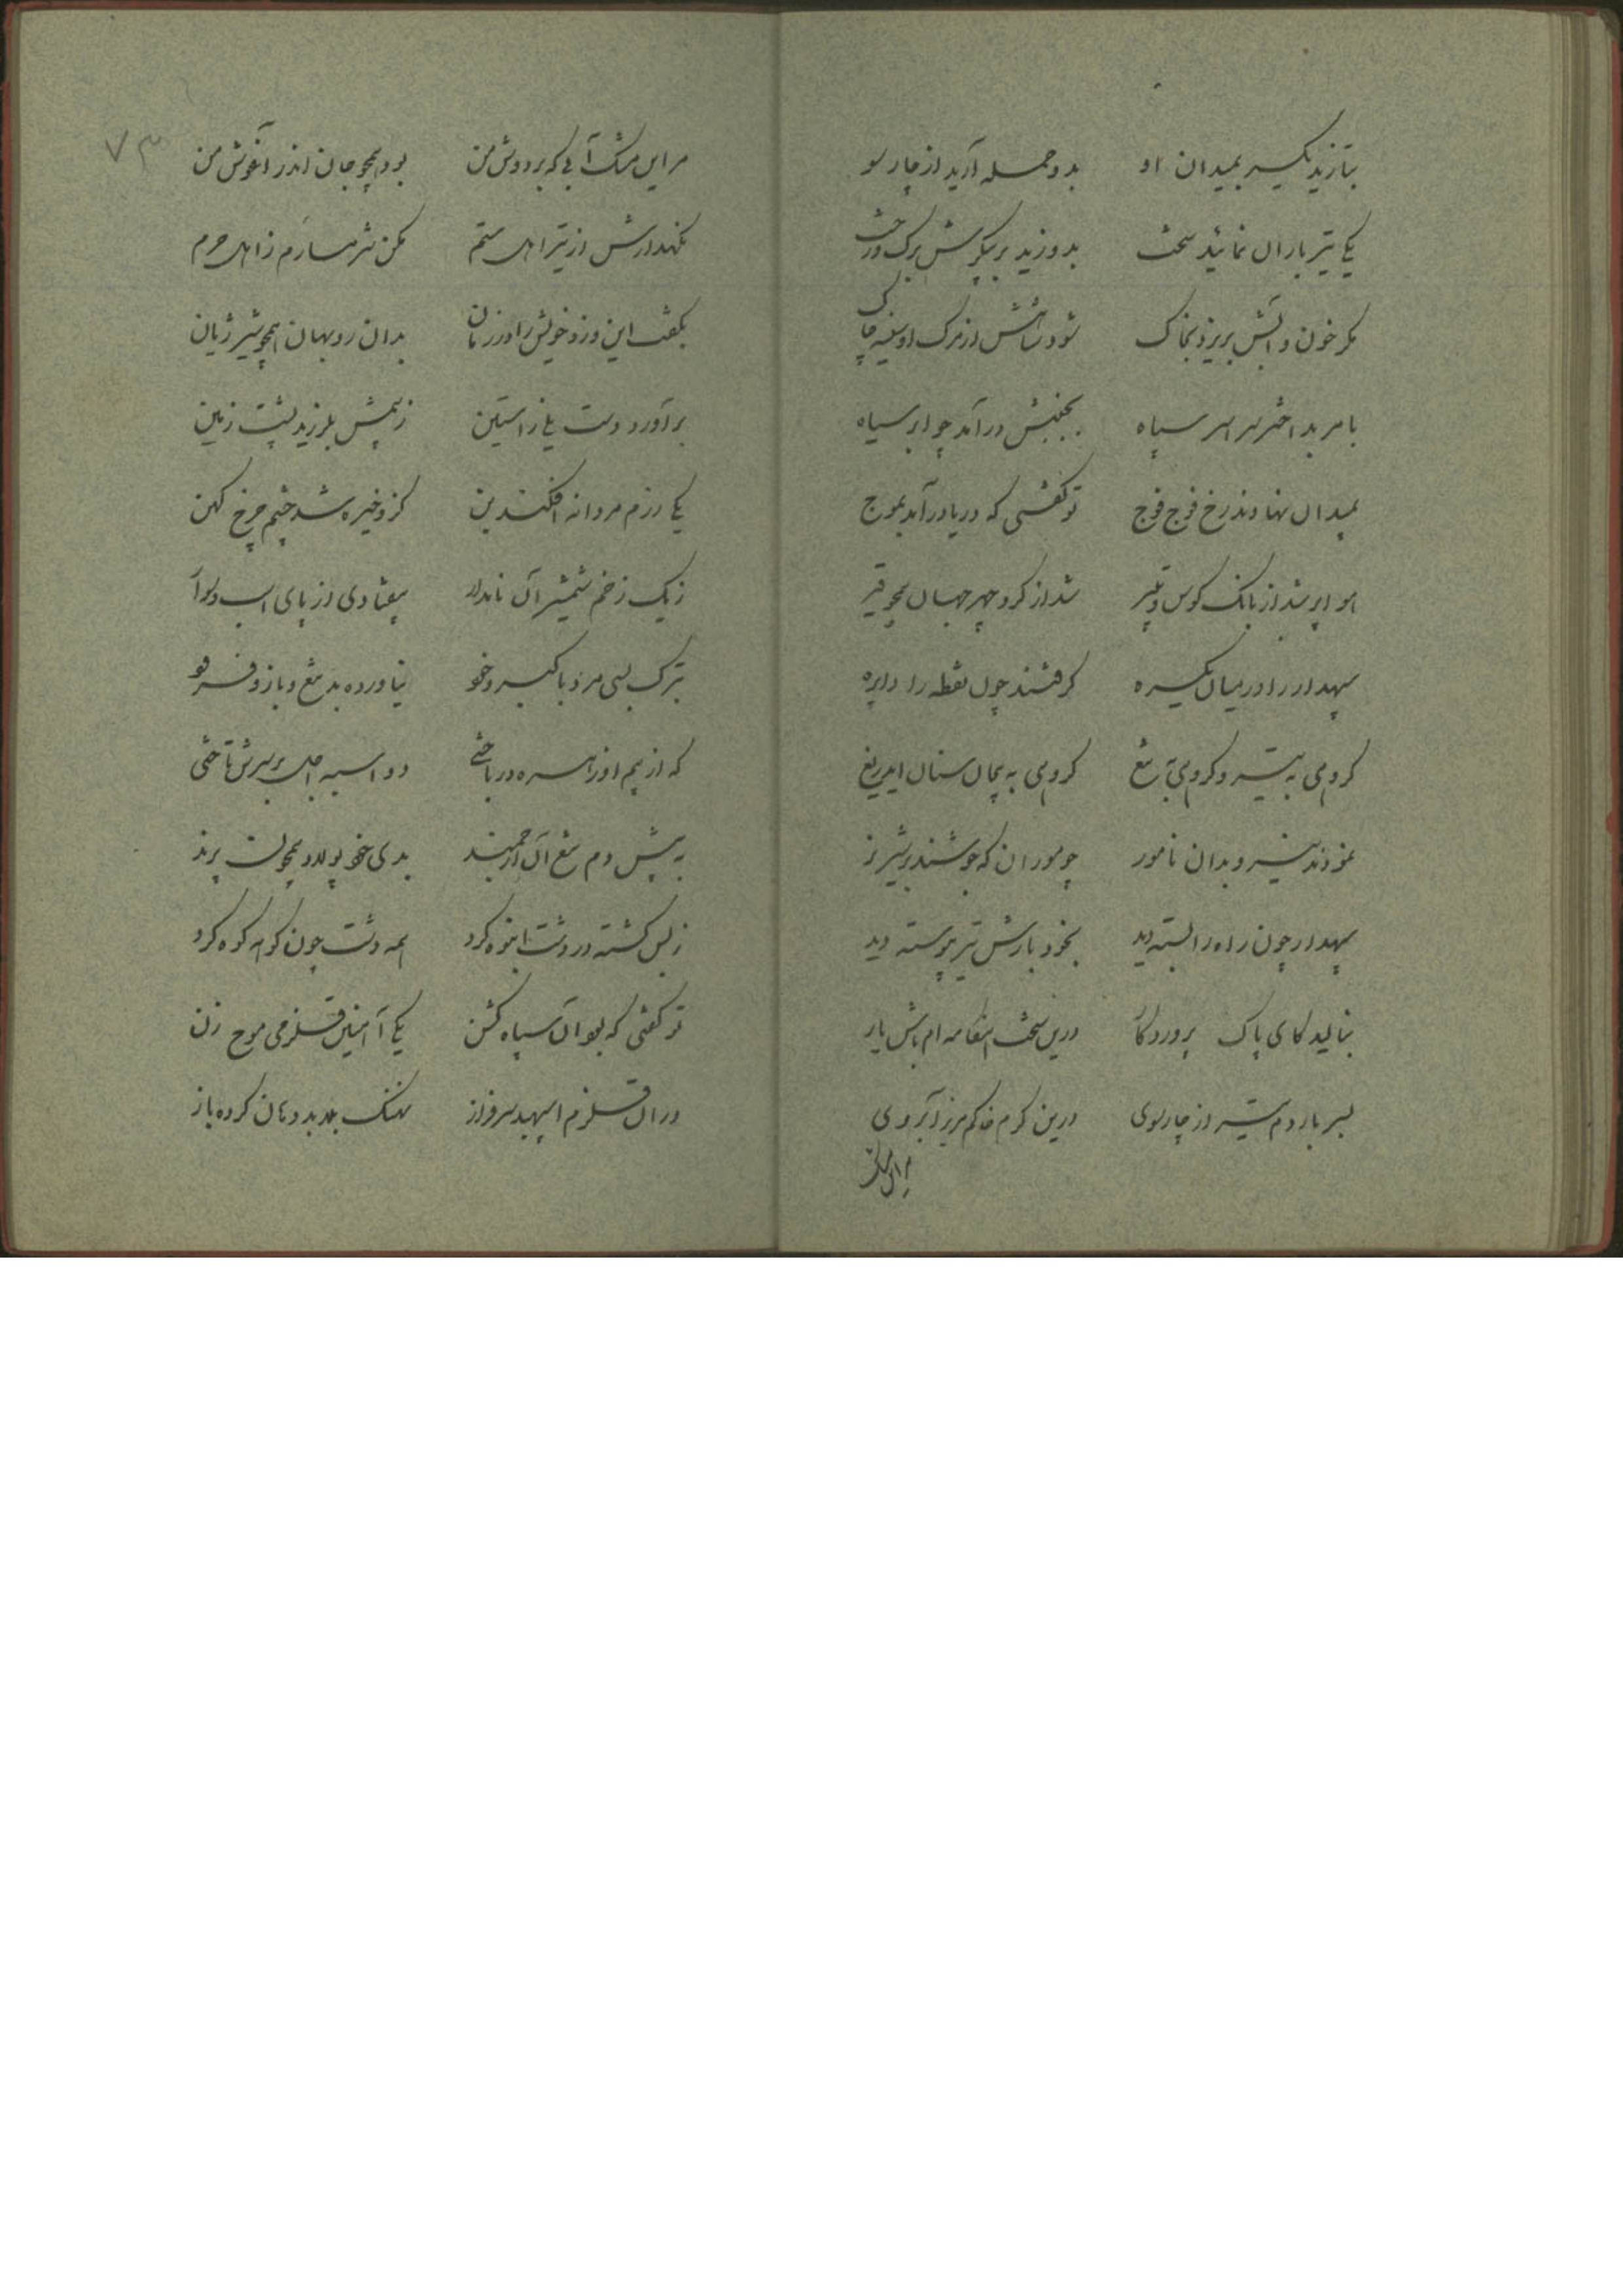 بتازید یکسر بمیدان او بدو حمله آرید از چار سو
یکی تیر باران نمائید سخت بدوزید بر پیکرش برگ و رخت
مگر خون و آبش بریزد بخاک شود شاهش از مرگ او سینه چاک
بامر بد اختر سراسر سپاه بجنبش درآمد چو ابر سیاه
بمیدان نهادند رخ فوج فوج تو گفتی که دریا درآمد بموج
هوا پر شد از بانگ کوس و نفیر شد از گرد چهر جهان همچو قیر
سپهدار را در میان یکسره گرفتند چون نقطه را دایره
گروهی به تیر و گروهی به تیغ گروهی به پیمان سنان بیدریغ
نمودند نیرو بدان نامور چو موران که جوشند بر شیر نر
سپهدار چون راه را بسته دید بخود بارش تیر پیوسته دید
بنالید کای پاک پروردگار درین سخت هنگامه ام باش یار
بسر باردم تیر از چار سوی درین گرم خاکم مریز آبروی
مر این مشک
۷۳
مر این مشک آبی که بر دوش من بود همچو جان اندر آغوش من
نگهدارش از تیر اهل ستم مکن شرمسارم ز اهل حرم
بگفت این و زد خویش را در زمان بدان روبهان همچو شیر ژیان
برآورد دست یلی ز آستین ز بیمش بلرزید پشت زمین
یکی رزم مردانه افکند بن کزو خیره شد چشم چرخ کهن
ز یک زخم شمشیر آن نامدار بیفتادی از پای اسب و سوار
بترک بسی مرد با گبر و خود نیاورده بد تیغ و بازو فرود
که از بیم او زهره در باختی دو اسبه اجل بر سرش تاختی
به پیش دم تیغ آن ارجمند بدی خود پولاد همچون پرند
ز بس کشته در دشت انبوه کرد همه دشت چون کوهه کوه کرد
تو گفتی که بود آن سپاه گشن یکی آهنین قلزمی موج زن
در آن قلزم اسپهبد سرفراز نهنگ بد بد دهان کرده باز